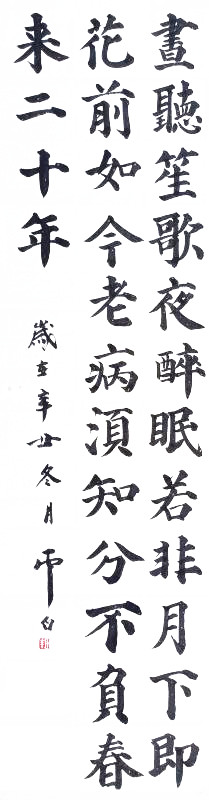 晝聽笙歌夜醉眠若非月下即
花前如今老病須知分不負春
来二十年
歲在辛丑冬月